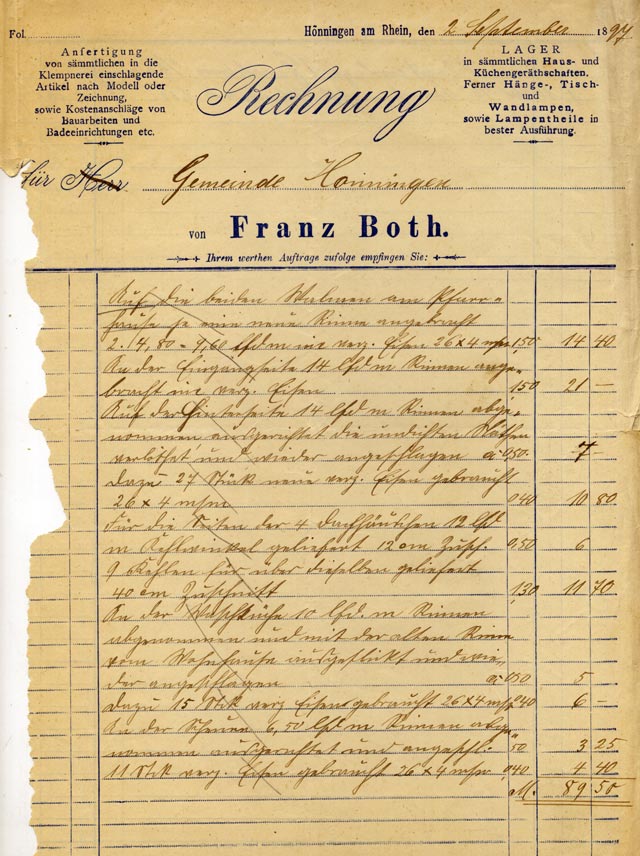 Fol.
Hönningen am Rhein, den 2 September 1897
Anfertigung
von sämmtlichen in die
Klempnerei einschlagende
Artikel nach Modell oder
Zeichnung,
sowie Kostenanschläge von
Bauarbeiten und
Badeeinrichtungen etc.
Rechnung
LAGER
in sämmtlichen Haus- und
Küchengeräthschaften.
Ferner Hänge-, Tisch-
und
Wandlampen,
sowie Lampentheile in
bester Ausführung.
für Herr Gemeinde Hönningen
von Franz Both.
Ihrem werthen Auftrage zufolge empfingen Sie:
Auf die beiden Walmen am Pfarr=
hause je eine neue Rinne angebracht
2. 4,80 = 9,60 lfd m in verz. Eisen 26 x 4 1,50 14 40
An der Eingangseite 14 lfd m Rinnen ange=
bracht in verz. Eisen 150 21 —
Auf der Hinterseite 14 lfd m Rinnen abge=
nommen ausgerichtet die undichten Näthen
verlöthet und wieder angeschlagen a 0,50. 7
Dazu 27 Stück neue verz. Eisen gebraucht
26 x 4 m/m 040 10 80
Für die Seiten der 4 Dachhäuschen 12 lfd
m Kehlwinkel geliefert 12 cm Zusch. 0,50 6
9 Kehlen für über dieselben geliefert
40 cm Zuschnitt 1,30 11 70
An der Waschküche 10 lfd. m Rinnen
abgenommen und mit der alten Rinne
vom Wohnhause ausgeflickt und wie=
der angeschlagen a 050 5 —
Dazu 15 Stck verz Eisen gebraucht 26 x 4 m/m 040 6 —
An der Scheune 6,50 lfd m Rinnen abge=
nommen ausgerichtet und angeschl. 50 3 25
11 Stck verz. Eisen gebraucht 26 x 4 m/m 040 4 40
M. 89 50